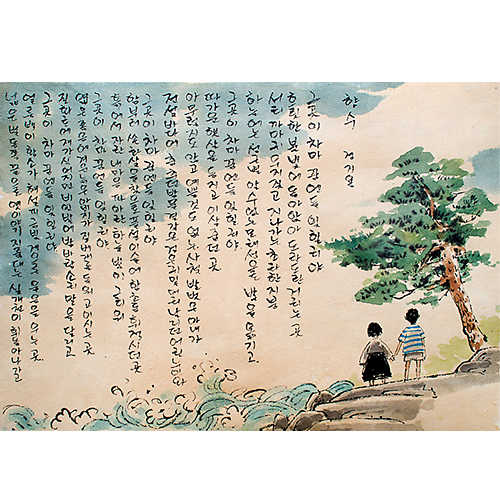 향수 정지용
넓은 벌 동쪽 끝으로 옛이야기 지줄대는 실개천이 휘돌아 나가고
얼룩백이 황소가 해설피 금빛 게으른 울음을 우는 곳
그곳이 차마 꿈엔들 잊힐리야
질화로에 재가 식어지면 비인 밭에 밤바람소리 말을 달리고
엷은 졸음에 겨운 늙으신 아버지가 짚베개를 돋아 고이시는 곳
그곳이 차마 꿈엔들 잊힐리야
흙에서 자란 내 마음 파란 하늘빛이 그리워
함부로 쏜 화살을 찾으려 풀섶 이슬에 함초롬 휘적시던 곳
그곳이 차마 꿈엔들 잊힐리야
전설바다에 춤추는 밤물결 같은 검은 귀밑머리 날리는 어린 누이와
아무렇지도 않고 예쁠 것도 없는 사철 발벗은 아내가
따가운 햇살을 등에 지고 이삭 줍던 곳
그곳이 차마 꿈엔들 잊힐리야
하늘에는 성근 별 알 수도 없는 모래성으로 발을 옮기고
서리 까마귀 우지짖고 지나가는 초라한 지붕
흐릿한 불빛에 돌아앉아 도란도란거리는 곳
그곳이 차마 꿈엔들 잊힐리야